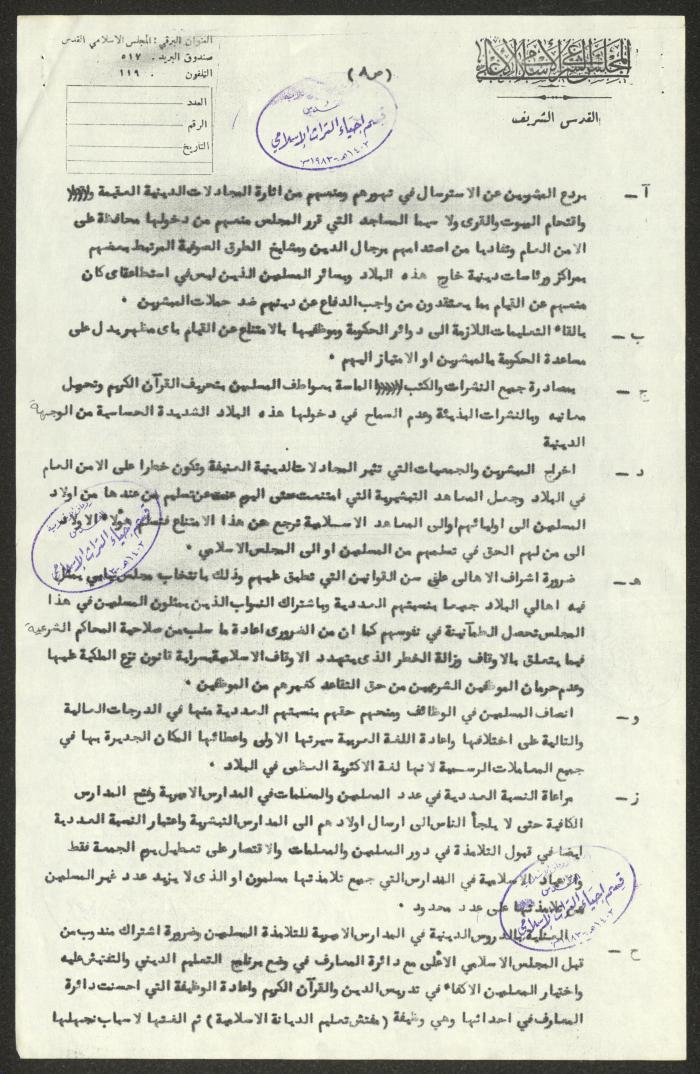 العنوان البرقي : المجلس الاسلامي القدس
صندوق البريد . ٥١٧
التلفون . ١١٩
العدد
الرقم
التاريخ
(ص٨)
المجلس الشرعي الاسلامي الاعلى
القدس الشريف
القدس
قسم إحياء التراث الإسلامي
١٤٠٢هـ - ١٩٨٣م
آ – بردع المبشرين عن الاسترسال في تهورهم ومنعهم من اثارة المجادلات الدينية العقيمة
واقتحام البيوت والقرى ولا سيما المساجد التي قرر المجلس منعهم من دخولها محافظة على
الامن العام وتفاديا من اصتدامهم برجال الدين ومشايخ الطرق الصوفية المرتبط بعضهم
بمراكز ورئاسات دينية خارج هذه البلاد وبسائر المسلمين الذين ليس في استطاعة اى كان
منعهم عن القيام بما يعتقدون من واجب الدفاع عن دينهم ضد حملات المبشرين .
ب – بالقاء التعليمات اللازمة الى دوائر الحكومة وموظفيها بالامتناع عن القيام باى مظهر يدل على
مساعدة الحكومة بالمبشرين او الامتياز اليهم .
ج – بمصادرة جميع النشرات والكتب الماسة بعواطف المسلمين بتحريف القرآن الكريم وتحويل
معانيه وبالنشرات البذيئة وعدم السماح في دخولها هذه البلاد الشديدة الحساسية من الوجهة
الدينية
د – اخراج المبشرين والجمعيات التي تثير المجادلات الدينية العنيفة وتكون خطرا على الامن العام
في البلاد وجعل المعاهد التبشيرية التي امتنعت حتى اليوم عن تسليم من عندها من اولاد
المسلمين الى اوليائهم او الى المعاهد الاسلامية ترجع عن هذا الامتناع فتسلم هؤلاء الاولاد
الى من لهم الحق في تسلمهم من المسلمين او الى المجلس الاسلامي .
هـ – ضرورة اشراف الاهالى على سن القوانين التي تطبق عليهم وذلك بانتخاب مجلس نيابي يمثل
فيه اهالي البلاد جميعا بنسبتهم العددية وباشتراك النواب الذين يمثلون المسلمين في هذا
المجلس تحصل الطمأنينة في نفوسهم كما ان من الضرورى اعادة ما سلب من صلاحية المحاكم الشرعية
فيما يتعلق بالاوقاف وازالة الخطر الذى يتهدد الاوقاف الاسلامية بسراية قانون نزع الملكية عليها
وعدم حرمان الموظفين الشرعيين من حق التقاعد كغيرهم من الموظفين .
و – انصاف المسلمين في الوظائف ومنحهم حقهم بنسبتهم العددية منها في الدرجات العالية
والتالية على اختلافها واعادة اللغة العربية سيرتها الاولى واعطائها المكان الجديرة بها في
جميع المعاملات الرسمية لانها لغة الاكثرية العظمى في البلاد .
ز – مراعاة النسبة العددية في عدد المعلمين والمعلمات في المدارس الاميرية وفتح المدارس
الكافية حتى لا يلجأ الناس الى ارسال اولادهم الى المدارس التبشيرية واعتبار النسبة العددية
ايضا في قبول التلامذة في دور المعلمين والمعلمات والاقتصار على تعطيل يوم الجمعة فقط
والاعياد الاسلامية في المدارس التي جميع تلامذتها مسلمون او الذى لا يزيد عدد غير المسلمين
تلامذتها على عدد محدود .
ح – العناية بالدروس الدينية في المدارس الاميرية للتلامذة المسلمين وضرورة اشتراك مندوب من
قبل المجلس الاسلامي الاعلى مع دائرة المعارف في وضع برنامج التعليم الديني والتفتيش عليه
واختيار المعلمين الاكفاء في تدريس الدين والقرآن الكريم واعادة الوظيفة التي احسنت دائرة
المعارف في احداثها وهي وظيفة ( مفتش تعليم الديانة الاسلامية ) ثم الغتها لاسباب نجهلها
قسم إحياء التراث الإسلامي
قسم إحياء التراث الإسلامي